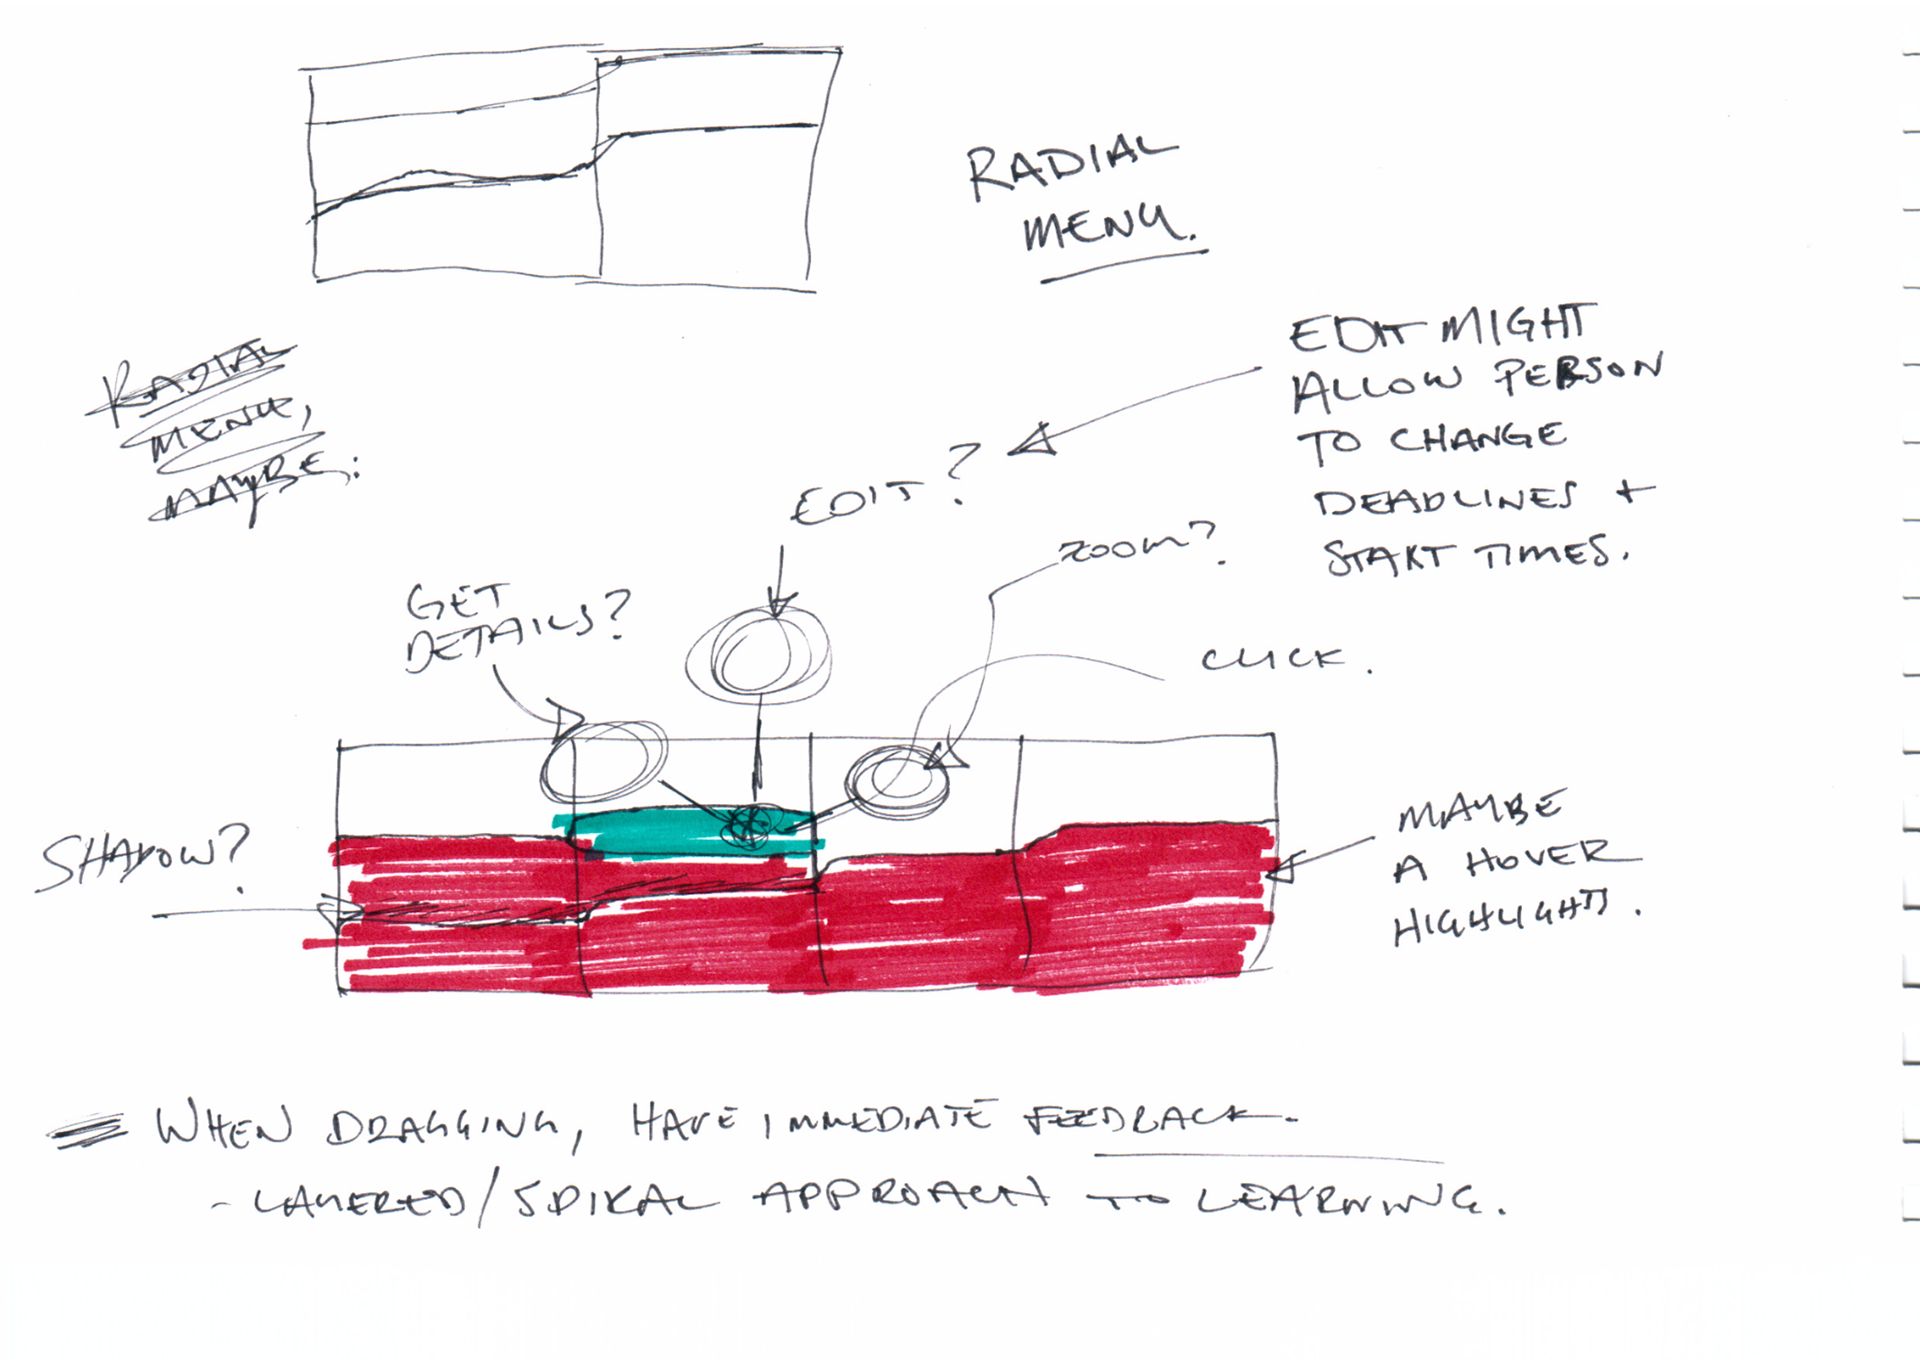 RADIAL
MENU.
RADIAL
MENU,
MAYBE.
EDIT MIGHT
ALLOW PERSON
TO CHANGE
DEADLINES +
START TIMES.
EDIT?
ZOOM?
GET
DETAILS?
CLICK.
SHADOW?
MAYBE
A HOVER
HIGHLIGHT.
WHEN DRAGGING, HAVE IMMEDIATE FEEDBACK.
- LAYERED/SPIRAL APPROACH TO LEARNING.